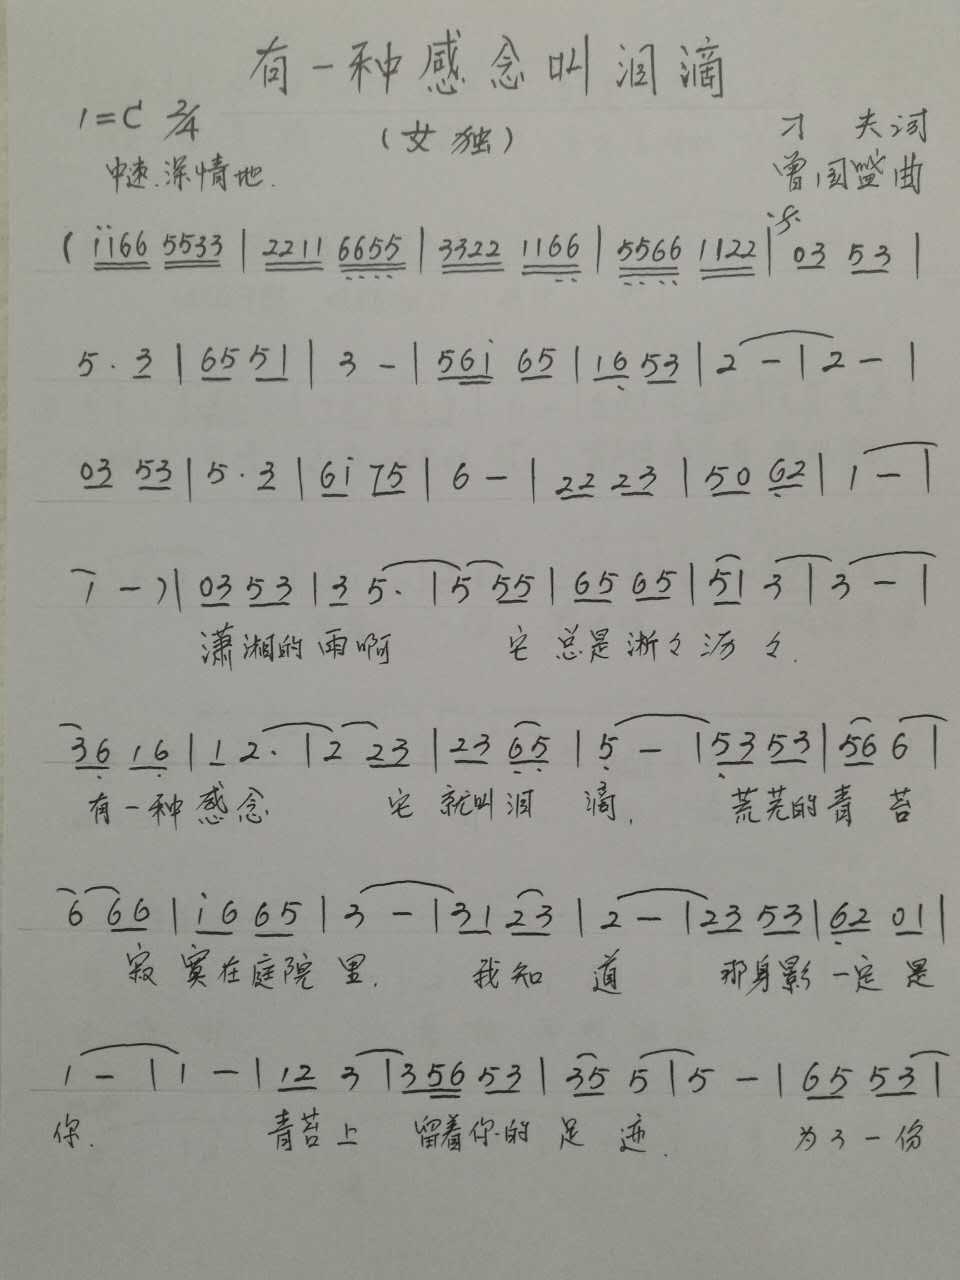 有一种感念叫泪滴
1=C 2/4
(女独)
刁 夫词
中速.深情地.
曾国盛曲
( i̇i̇66 5533 | 2211 6̣6̣5̣5̣ | 3322 116̣6̣ | 5̣5̣6̣6̣ 1122 | 03 53 |
5 · 3 | 65 51 | 3 - | 56i̇ 65 | 16̣ 53 | 2 - | 2 - |
03 53 | 5 · 3 | 6i̇ 75 | 6 - | 22 23 | 50 6̣2 | 1 - |
1 - ) | 03 53 | 3 5 · | 5 55 | 65 65 | 51 3 | 3 - |
潇湘的雨啊 它总是淅々沥々.
36̣ 16̣ | 1 2 · | 2 23 | 23 6̣5̣ | 5̣ - | 5̣3 53 | 56 6 |
有一种感念 它就叫泪滴, 荒芜的青苔
6 66 | i̇6 65 | 3 - | 31 23 | 2 - | 23 53 | 6̣2 01 |
寂寞在庭院里. 我知道 那身影一定是
1 - | 1 - | 12 3 | 356 53 | 35 5 | 5 - | 65 53 |
你. 青苔上 留着你的足迹. 为了一份